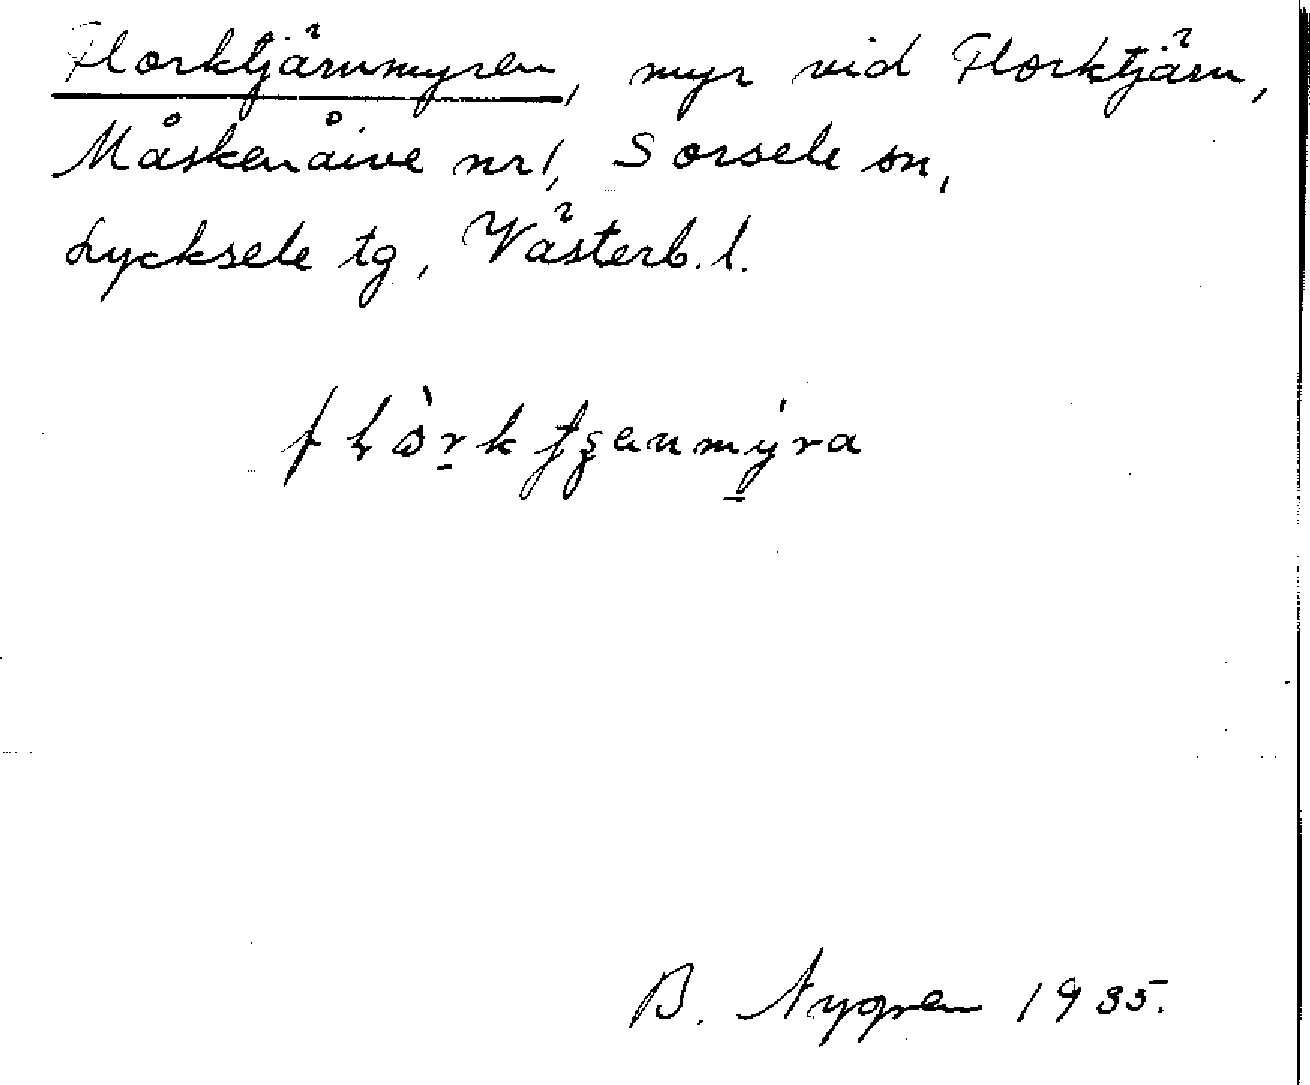 Florktjärnmyren, myr vid Florktjärn,
Måskenåive nr 1, Sorsele sn,
Lycksele tg, Västerb. l.
B. Nygren 1935.